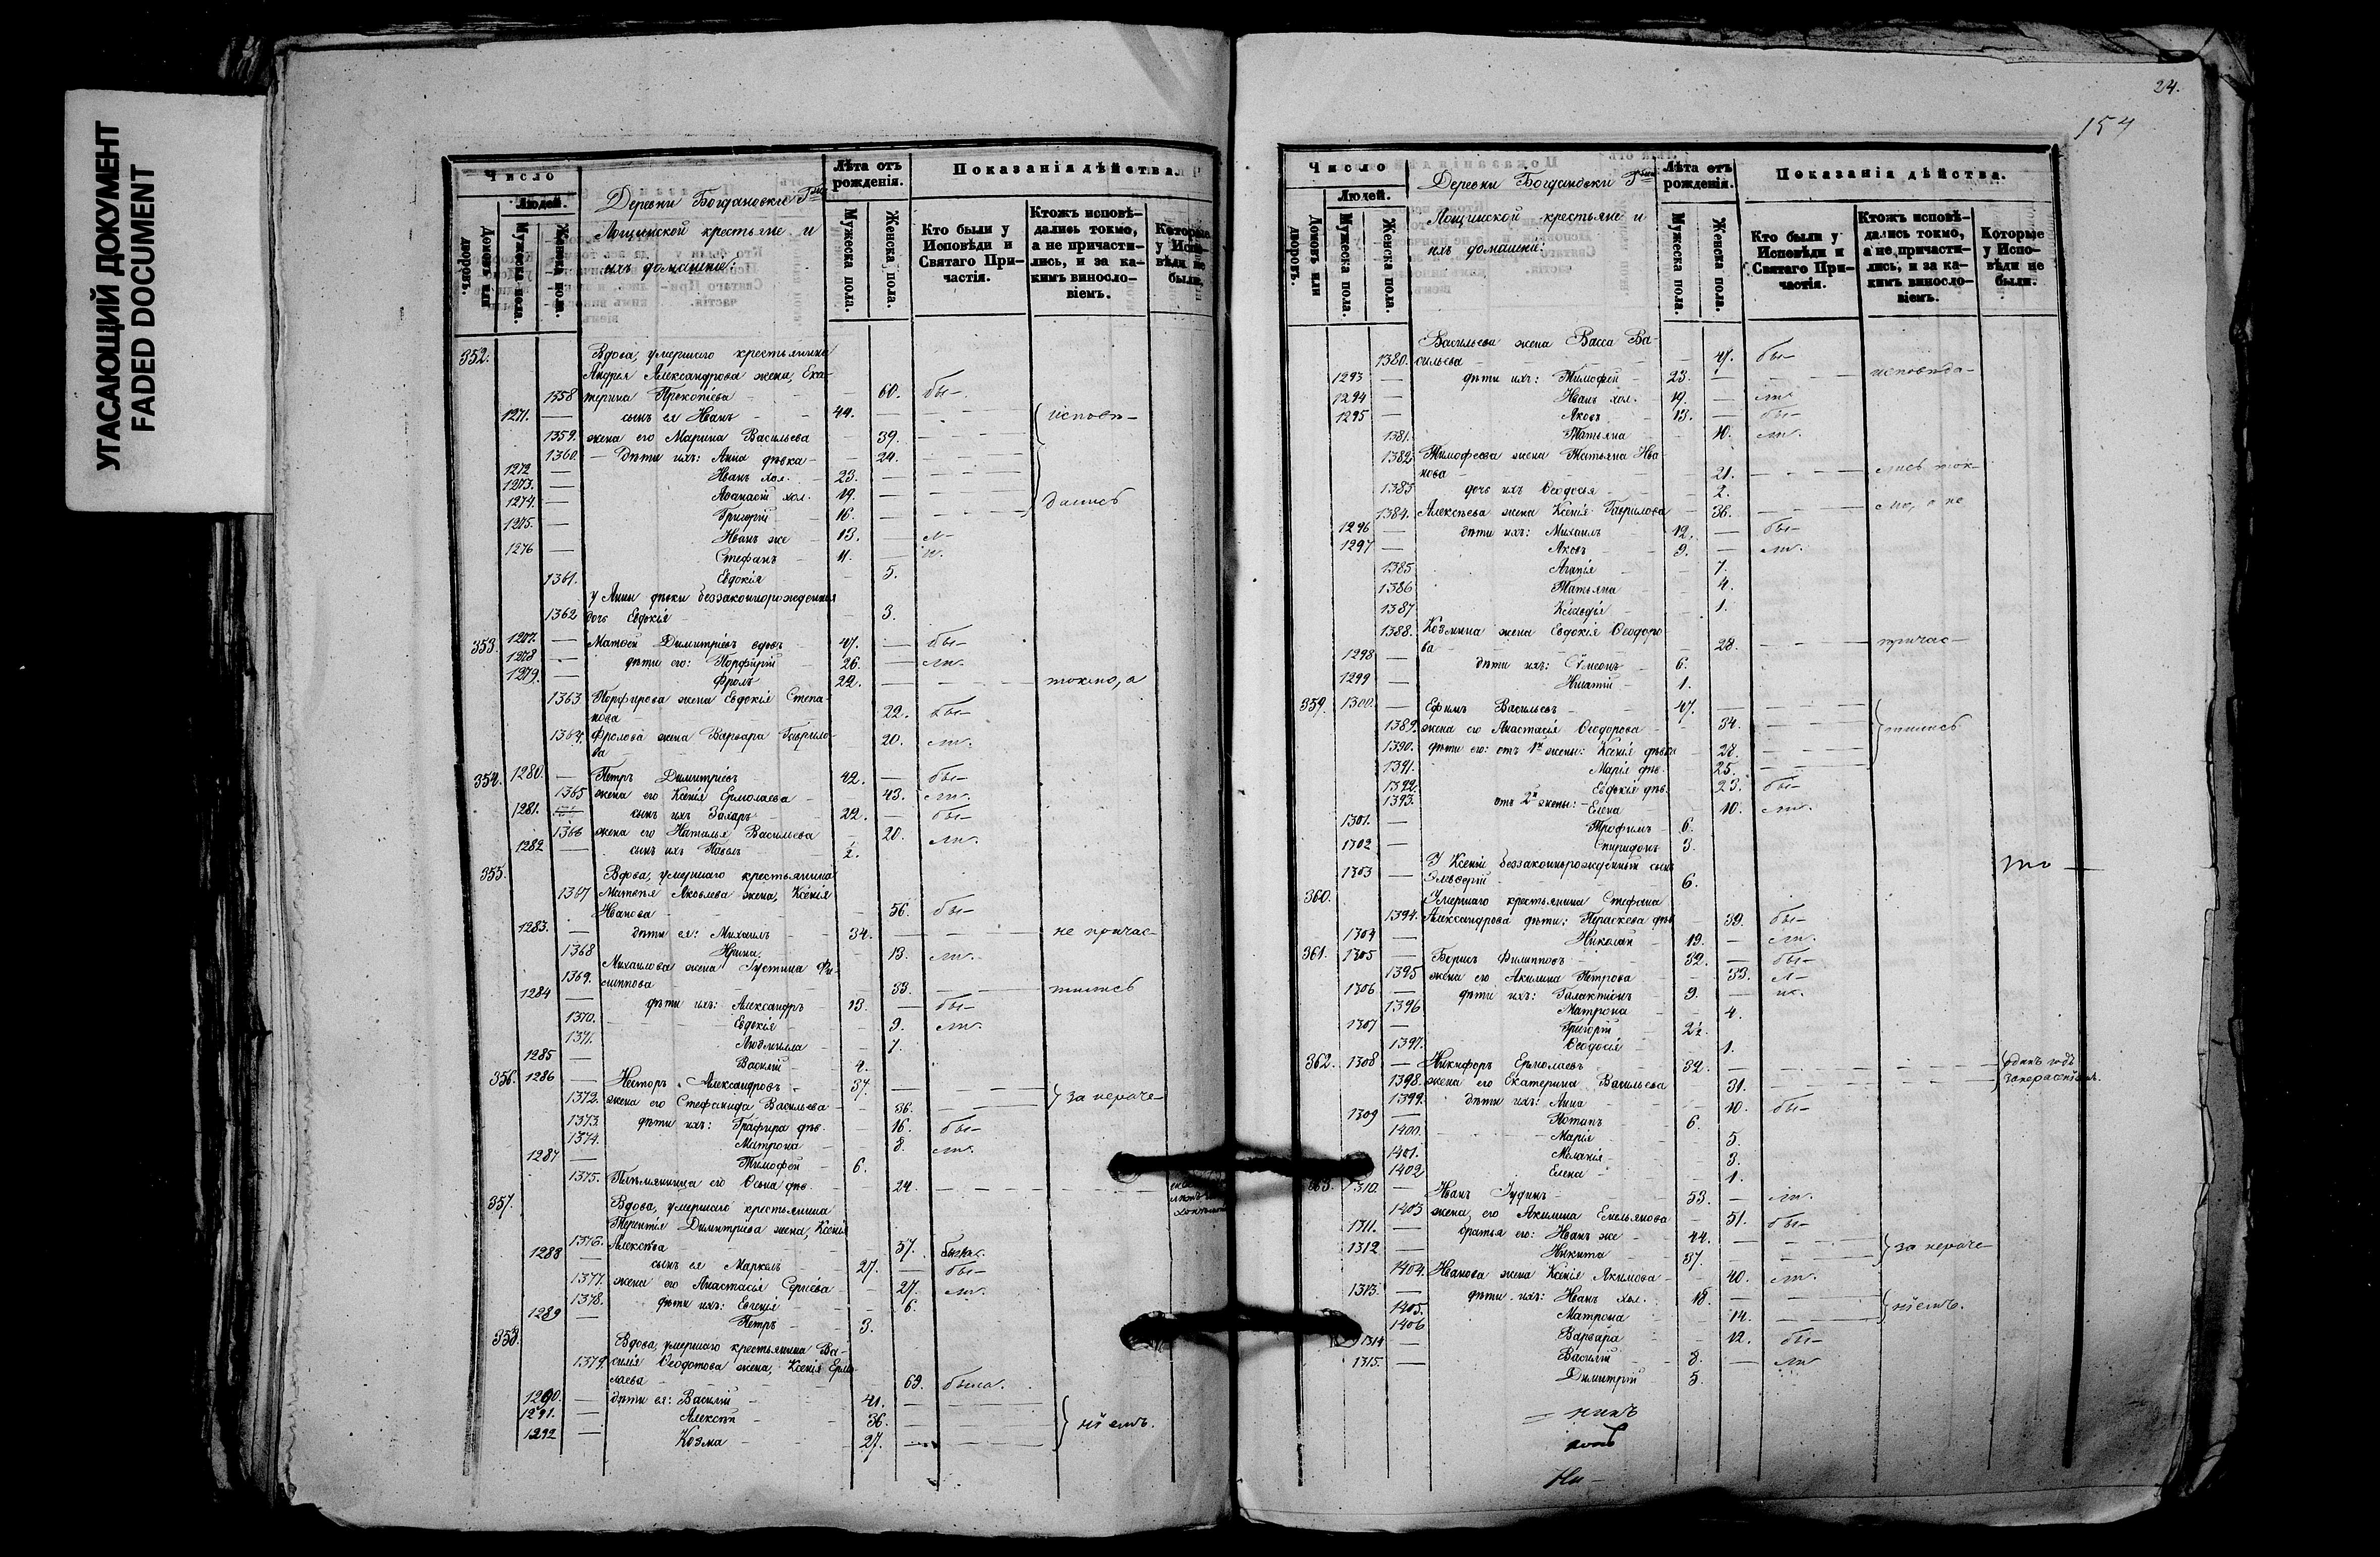 УГАСАЮЩИЙ ДОКУМЕНТ
FADED DOCUMENT
Число
Людей.
Домовъ или дворовъ.
Мужеска пола.
Женска пола.
Деревни Богдановки Г-жи
Лощинской крестьяне и
ихъ домашніе:
Лѣта отъ рожденія.
Мужеска пола.
Женска пола.
Показанія дѣйства.
Кто были у Исповѣди и Святаго Причастія.
Ктожъ исповѣдались токмо, а не причастились, и за какимъ винословіемъ.
Которые у Исповѣди не были.
352. Вдова, умершаго крестьянина
Андрея Александрова жена, Ека-
1358 терина Прокопіева 60. бы-
1271. сынъ ея Иванъ 44. исповѣ-
1359. жена его Марина Васильева 39.
1360. дѣти ихъ: Анна дѣвка 24.
1272 Иванъ хол. 23.
1273. Афанасій хол. 19. дались
1274. Григорій 16.
1275. Иванъ же 13. л-
1276 Стефанъ 11. и.
1361. Евдокія 5.
у Анны дѣвки беззаконнорожденная
1362 дочь Евдокія 3.
353. 1277. Матѳей Димитріевъ вдовъ 47. бы-
1278 дѣти его: Порфирій 26. ли.
1279. Фролъ 22. токмо, а
1363 Порфирова жена Евдокія Степа-
нова 22. бы-
1364. Фролова жена Варвара Гаврило-
ва 20. ли.
354. 1280. Петръ Димитріевъ 42. бы-
1365 жена его Ксенія Ермолаева 43. ли.
1281. сынъ ихъ Захаръ 22. бы-
1366 жена его Наталья Васильева 20. ли.
1282 сынъ ихъ Павелъ ½.
355. Вдова, умершаго крестьянина
1367 Матвѣя Яковлева жена, Ксенія
Иванова 56. бы-
1283. дѣти ея: Михаилъ 34. не причас-
1368 Ирина. 13. ли.
Михаилова жена Іустина Фи-
1369. липпова 33. тились
1284 дѣти ихъ: Александръ 13. бы-
1370. Евдокія 9. ли.
1371. Людмилла 7.
1285 Василій 4.
356. 1286 Несторъ Александровъ 37.
1372. жена его Стефанида Васильева 36. за нераче-
1373. дѣти ихъ: Глафира дѣв. 16. бы-
1374. Матрона 8. ли.
1287 Тимофей 6.
1375. Племянница его 24.
357. Вдова, умершаго крестьянина
Терентія Димитріева жена, Ксенія
1376. Алексѣева 57. была.
1288 сынъ ея Маркелъ 27. бы-
1377. жена его Анастасія Сергіева 27. ли.
1378. дѣти ихъ: Евгенія 6.
1289 Петръ 3.
358. Вдова, умершаго крестьянина Ва-
1379. силія Ѳеодотова жена, Ксенія Ермо-
лаева 69. была.
1290. дѣти ея: Василій 41.
1291. Алексѣй 36. ніемъ.
1292 Козма 27.
24.
154
Число
Людей.
Домовъ или дворовъ.
Мужеска пола.
Женска пола.
Деревни Богдановки Г-жи
Лощинской крестьяне и
ихъ домашніе:
Лѣта отъ рожденія.
Мужеска пола.
Женска пола.
Показанія дѣйства.
Кто были у Исповѣди и Святаго Причастія.
Ктожъ исповѣдались токмо, а не причастились, и за какимъ винословіемъ.
Которые у Исповѣди не были.
Васильева жена Васса Ва-
1380. сильева 47. бы-
1293 дѣти ихъ: Тимофей 23. исповѣда-
1294 Иванъ хол. 19. ли.
1295 Яковъ 13. бы-
1381. Татьяна 10. ли.
1382 Тимофеева жена Татьяна Ива-
нова 21. лись ток-
1383 дочь ихъ Ѳеодосья 2.
1384. Алексѣева жена Ксенія Гаврилова 36. мо, а не
1296 дѣти ихъ: Михаилъ 12. бы-
1297 Яковъ 9. ли.
1385 Агапія 7.
1386 Татьяна 4.
1387 1.
1388. Козмина жена Евдокія Ѳеодоро-
ва 28. причас-
1298 дѣти ихъ: Сѵмеонъ 6.
1299 Игнатій 1.
359. 1300. Ефимъ Васильевъ 47.
1389. жена его Анастасія Ѳеодорова 34. тились
1390. дѣти его: отъ 1й жены: Ксенія дѣвка 28.
1391. Марія дѣв. 25.
1392. Евдокія дѣв. 23. бы-
1393. отъ 2й жены: Елена 10. ли.
1301. Трофимъ 6.
1302 Спиридонъ 3.
У Ксеніи беззаконнорожденный сынъ
1303 6.
360. Умершаго крестьянина Стефана
1394. Александрова дѣти: Параскева дѣв. 39. бы-
1304 Николай 19. ли.
361. 1305 Борисъ Филипповъ 32. бы-
1395 жена его Акилина Петрова 33. л-
1306 дѣти ихъ: Галактіонъ 9. и.
1396 Матрона 4.
1307 Григорій 2½.
1397. Ѳеодосія 1.
362. 1308 Никифоръ Ермолаевъ 32. одинъ годъ
1398. жена его Екатерина Васильева 31. за нерасніемъ.
1399. дѣти ихъ: Анна 10. бы-
1309 Потапъ 6.
1400. Марія 5.
1401. Меланія 3.
1402 Елена 1.
363. 1310. Иванъ Іудинъ 53. ли.
1403 жена его Акилина Емельянова 51. бы-
1311. братья его: Иванъ же 44.
1312 Никита 37. за нераче-
1404. Иванова жена Ксенія Акимова 40. ли.
1313. дѣти ихъ: Иванъ хол. 18.
1405. Матрона 14. ніемъ.
1406 Варвара 12. бы-
1314 Василій 8. ли
1315. Димитрій 5.
никъ